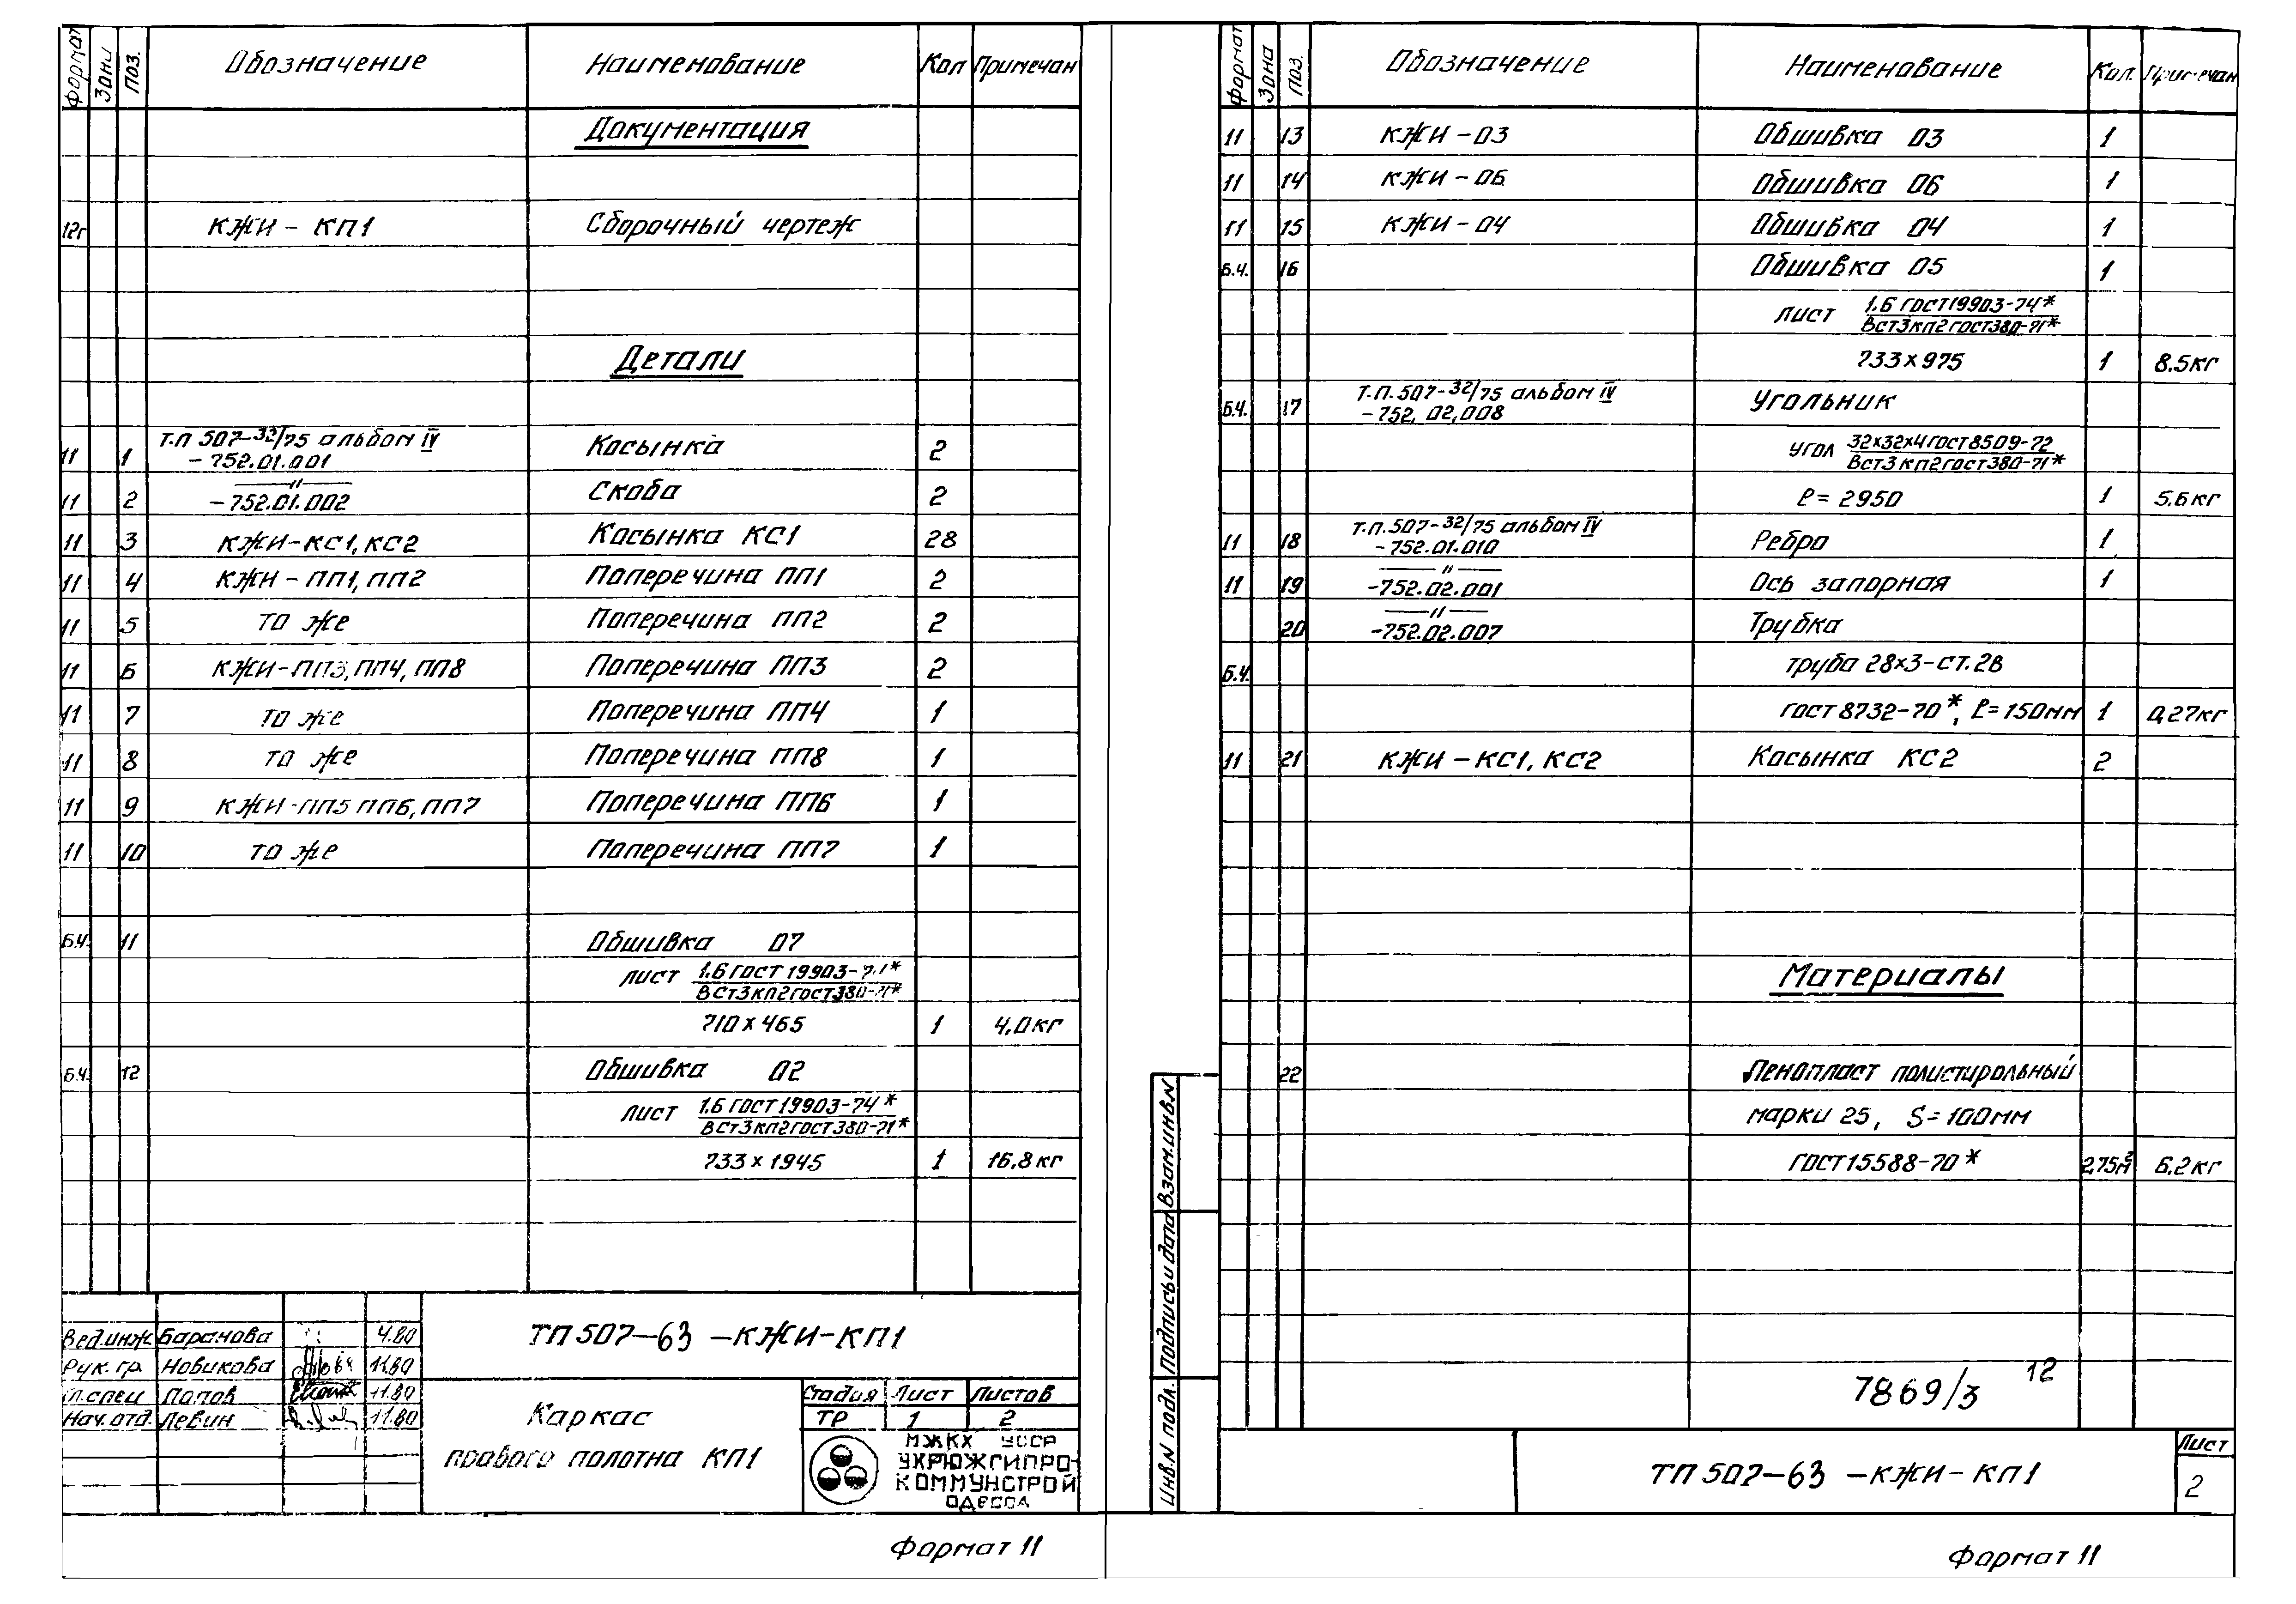 Формат Зони Поз. Обозначение Наименование Кол Примечан
Документация
12г КЖИ – КП1 Сборочный чертеж
Детали
11 1 Т.П 507-32/75 альбом IV – 752.01.001 Косынка 2
11 2 –〃– – 752.01.002 Скоба 2
11 3 КЖИ-КС1, КС2 Косынка КС1 28
11 4 КЖИ – ПП1, ПП2 Поперечина ПП1 2
11 5 то же Поперечина ПП2 2
11 6 КЖИ-ПП3, ПП4, ПП8 Поперечина ПП3 2
11 7 то же Поперечина ПП4 1
11 8 то же Поперечина ПП8 1
11 9 КЖИ-ПП5 ПП6, ПП7 Поперечина ПП6 1
11 10 то же Поперечина ПП7 1
Б.Ч. 11 Обшивка 07
лист 1.6 ГОСТ 19903-74*
ВСт3кп2 гост 380-71*
710 х 465 1 4,0 кг
Б.Ч. 12 Обшивка 02
лист 1.6 ГОСТ 19903-74*
ВСт3кп2 ГОСТ 380-71*
733 х 1945 1 16,8 кг
Вед.инж. Баранова 4.80
Рук. гр. Новикова 11.80
Гл.спец Попов 11.80
Нач. отд. Левин 11.80
ТП 507–63 –КЖИ–КП1
Каркас
правого полотна КП1
Стадия Лист Листов
ТР 1 2
МЖКХ УССР
УКРЮЖГИПРО-
КОММУНСТРОЙ
ОДЕССА
Формат 11
Формат Зона Поз. Обозначение Наименование Кол. Примечан
11 13 КЖИ – 03 Обшивка 03 1
11 14 КЖИ – 06 Обшивка 06 1
11 15 КЖИ – 04 Обшивка 04 1
Б.Ч. 16 Обшивка 05 1
лист 1.6 ГОСТ 19903-74*
ВСт3кп2 гост 380-71*
733 х 975 1 8.5 кг
Б.Ч. 17 Т.П. 507-32/75 альбом IV – 752. 02,008 Угольник
угол 32х32х4 ГОСТ 8509-72
ВСт3 кп2 гост 380-71*
ℓ = 2950 1 5.6 кг
11 18 Т.П. 507-32/75 альбом IV – 752.01.010 Ребро 1
11 19 –〃– –752.02.001 Ось запорная 1
20 –〃– –752.02.007 Трубка
Б.Ч. труба 28х3-ст.2В
гост 8732-70*, ℓ=150мм 1 0,27кг
11 21 КЖИ – КС1, КС2 Косынка КС2 2
Материалы
22 Пенопласт полистирольный
марки 25, S = 100мм
ГОСТ 15588-70* 2,75м² 6.2 кг
Взам.инв.N
Подпись и дата
Инв.N подл.
7869/3 12
ТП 507–63 –КЖИ–КП1
Лист
2
Формат 11